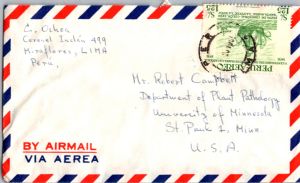 C. Ochoa
Coronel Inclán 499
Miraflores, LIMA
Peru,
PERU AEREO
Mr. Robert Campbell
Department of Plant Pathology
University of Minnesota
St. Paul 1, Minn
U. S. A.
BY AIRMAIL
VIA AEREA